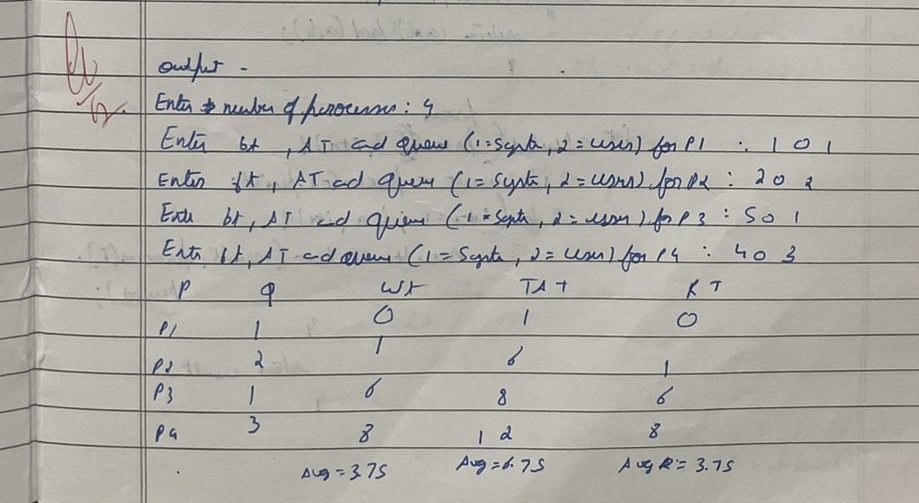 output -
Enter number of processes : 4
Enter bt , AT ad queue (1=Syste, 2=user) for P1 : 1 0 1
Enter bt, AT ad queue (1=Syste, 2=user) for P2 : 2 0 2
Ente bt, AT ad queue (1=Syste, 2=user) for P3 : 5 0 1
Ente bt, AT ad queue (1=Syste, 2=user) for P4 : 4 0 3
P Q WT TAT RT
P1 1 0 1 0
P2 2 1 6 1
P3 1 6 8 6
P4 3 8 12 8
Avg = 3.75 Avg = 6.75 Avg R = 3.75